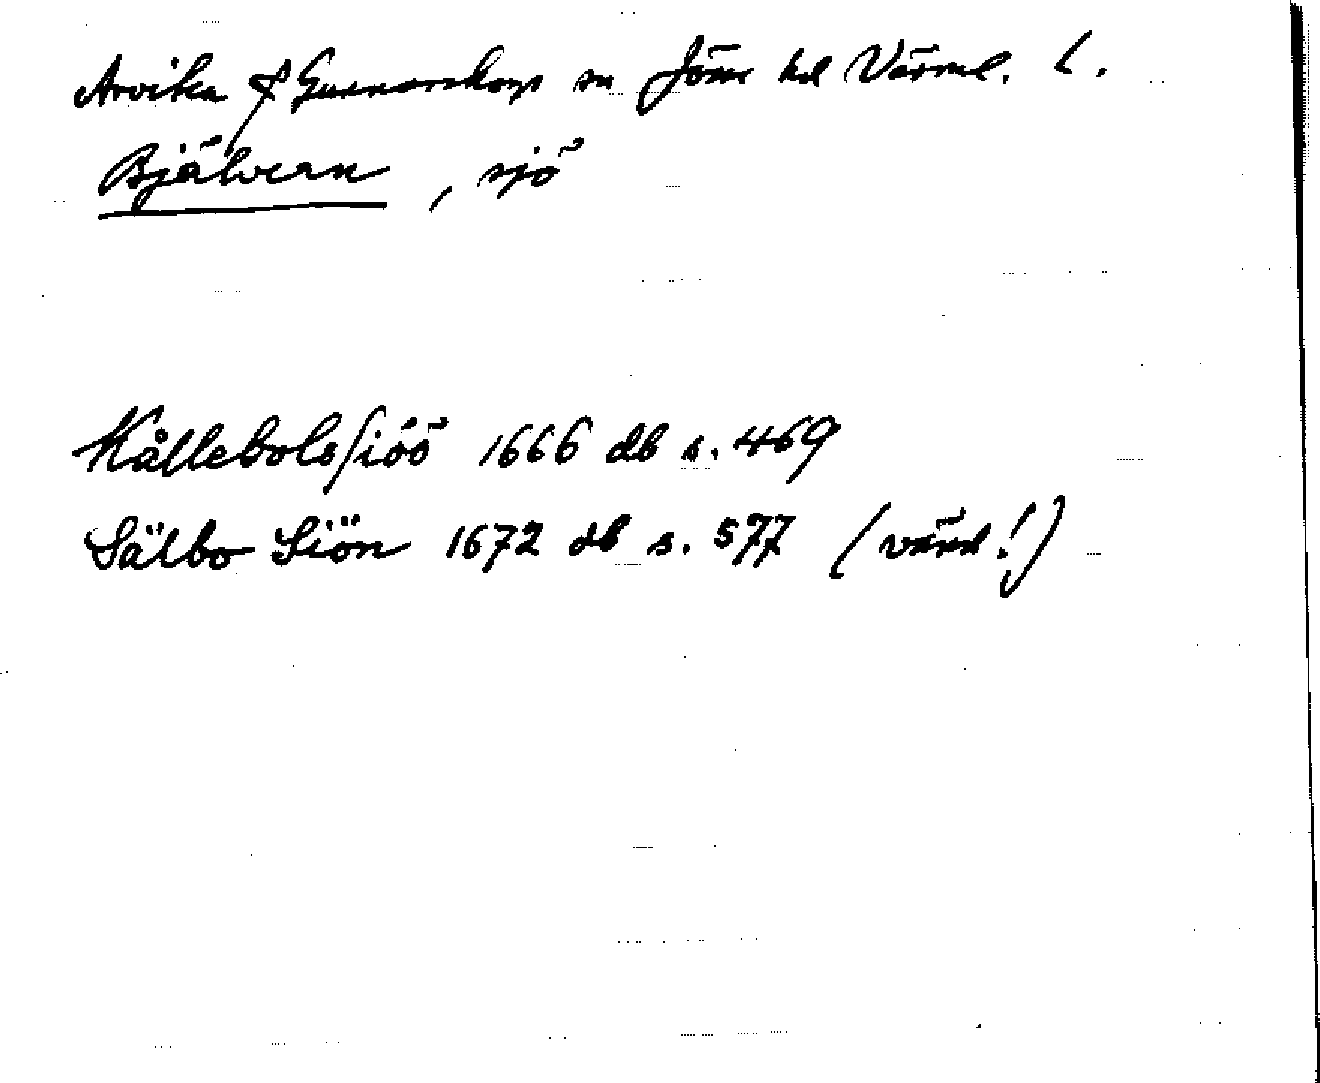 Arvika & Gunnarskogs sn Jösse hd Värml. L.
Bjälvern, sjö
Kållebolssiöö 1666 db s. 469
Sälbo Siön 1672 db s. 577 (värd!)